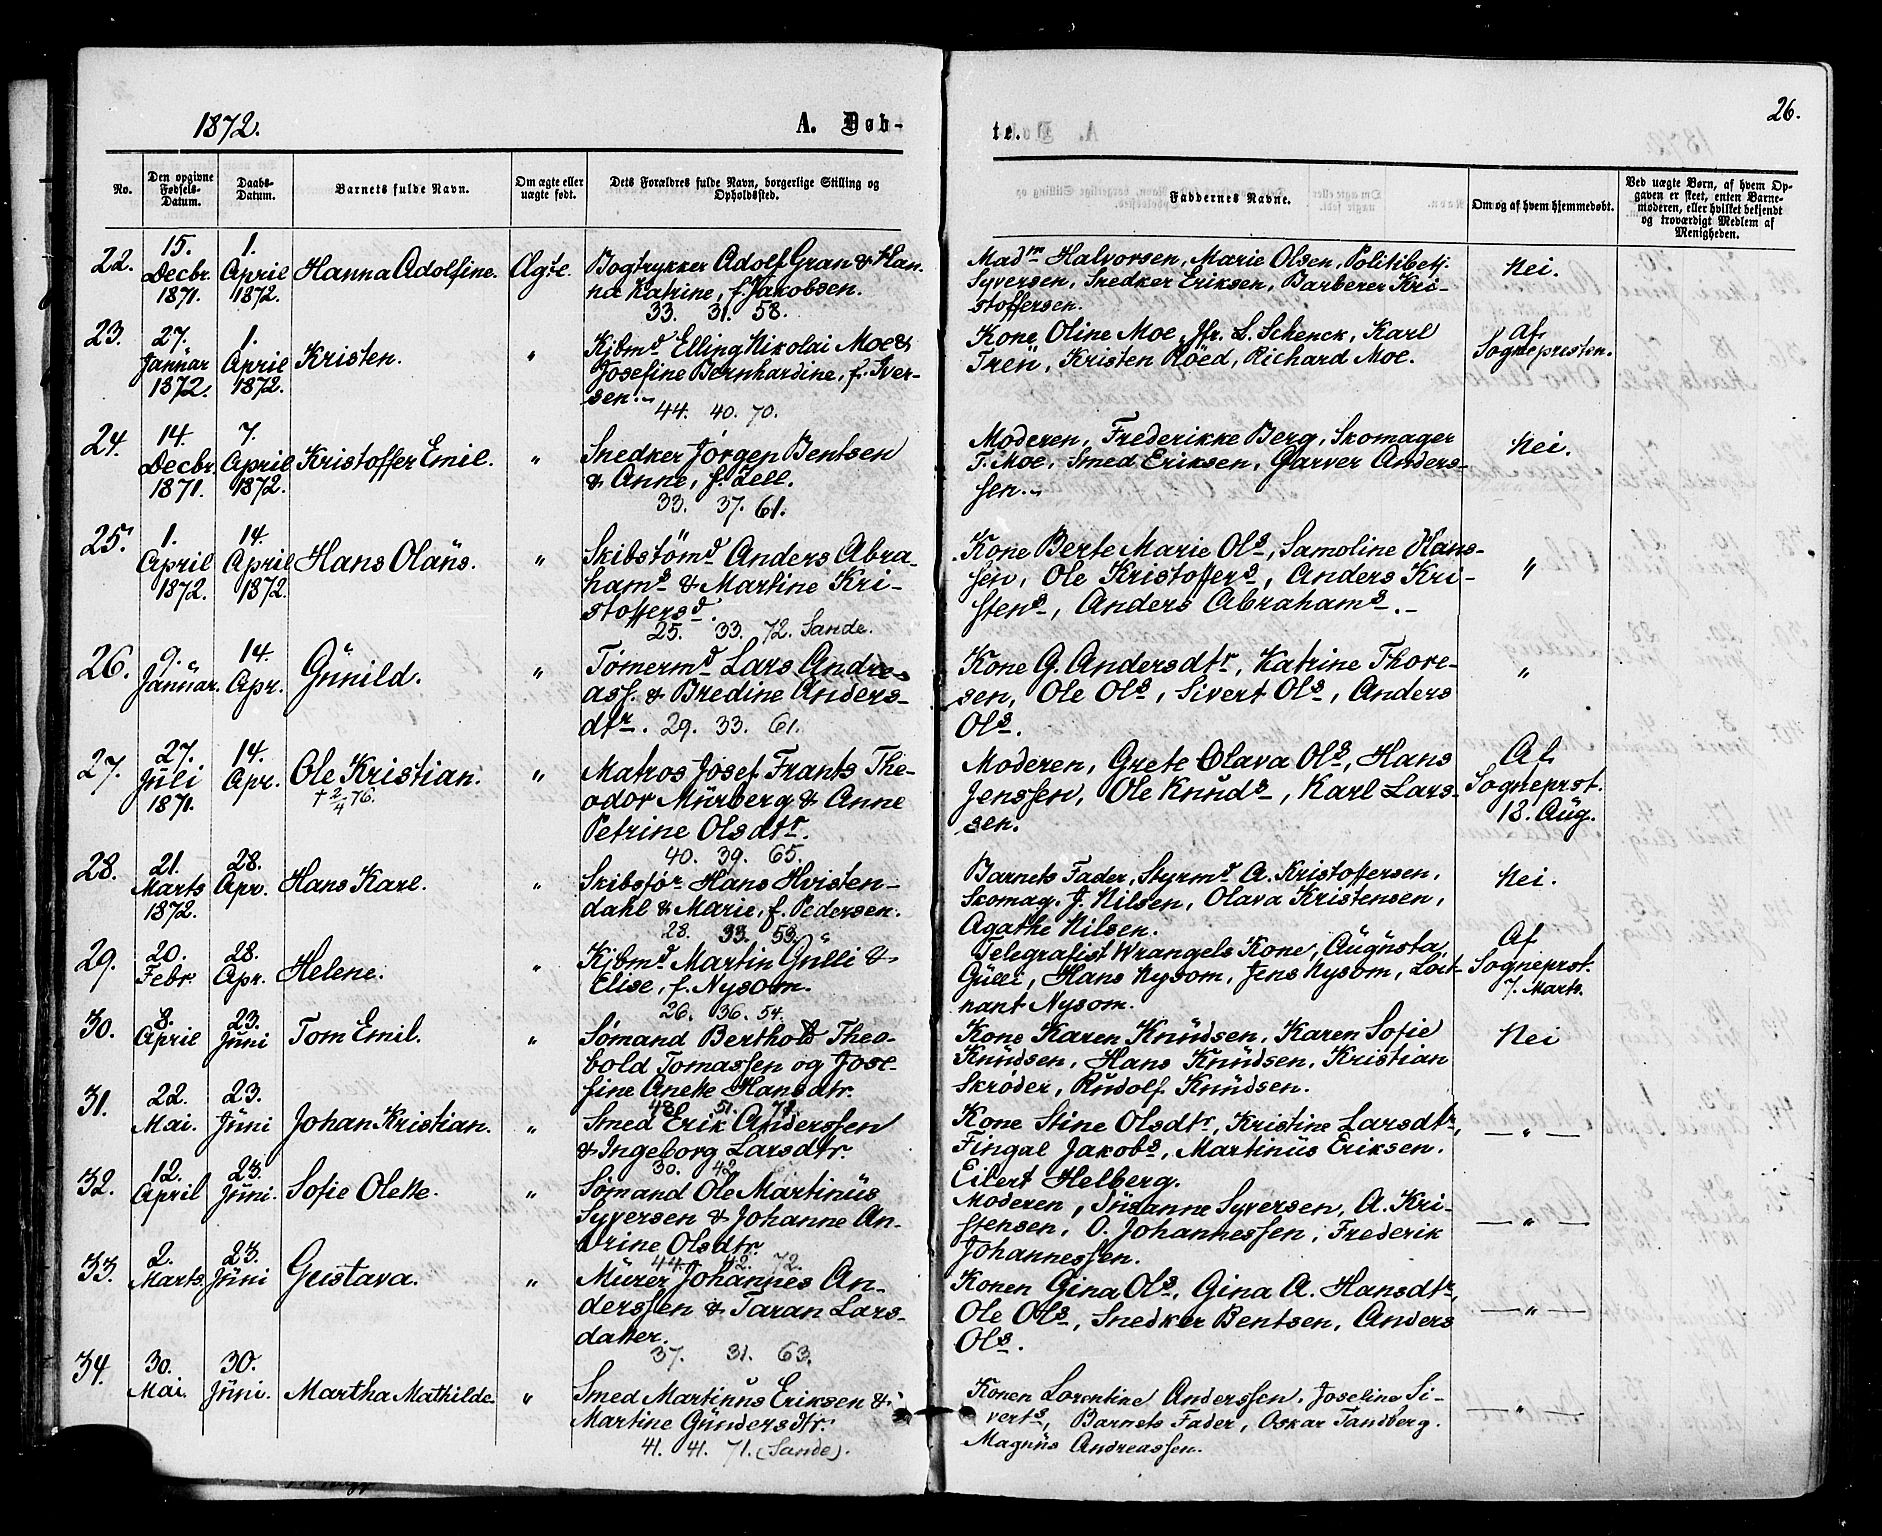 1872.
A. Døb-
te.
26.
No.
Den opgivne Fødsels-Datum.
Daabs-Datum.
Barnets fulde Navn.
Om ægte eller uægte født.
Dets Forældres fulde Navn, borgerlige Stilling og Opholdssted.
Faddernes Navne.
Om og af hvem hjemmedøbt.
Ved uægte Børn, af hvem Op-
gaven er skeet, enten Barne-
moderen, eller hvilket bekjendt
og troværdigt Medlem af
Menigheden.
22. 15. Decbr. 1871. 1. April 1872. Hanna Adolfine. Ægte.
Bogtrykker Adolf Gran & Han-
na Katrine, f. Jakobsen.
33. 31. 58.
Madm Halvorsen, Marie Olsen, Politibetj.
Syversen, Snedker Eriksen, Barberer Kri-
stoffersen.
Nei.
23. 27. Januar 1872. 1. April 1872. Kristen. "
Kjbmd Elling Nikolai Moe &
Josefine Bernhardine, f. Iver-
sen.
44. 40. 70.
Kone Oline Moe, Jfr. L. Schenck, Karl
Treu, Kristen Röed, Richard Moe.
Af
Sognepresten.
24. 14. Decbr. 1871. 7. April 1872. Kristoffer Emil. "
Snedker Jörgen Bentsen
& Anne, f. Lell.
33. 37. 61.
Moderen, Frederikke Berg, Skomager
T. Moe, Smed Eriksen, Garver Anders-
sen.
Nei.
25. 1. April 1872. 14. April 1872. Hans Olaus. "
Skibstømd Anders Abra-
hams & Martine Kri-
stoffersd.
25. 33. 72. Sande.
Kone Berte Marie Ols, Samoline Hans-
sen, Ole Kristoffers, Anders Kri-
stens, Anders Abrahams.
"
26. 9. Januar. 14. Apr. Gunild. "
Tømermd Lars Andre-
ass. & Bredine Anders-
dtr. 29. 33. 61.
Kone G. Andersdtr, Katrine Thore-
sen, Ole Ols, Sivert Ols, Anders
Ols.
"
27. 27. Juli 1871. 14. Apr. Ole Kristian. "
† 2/4 76.
Matros Josef Frants The-
odor Murberg & Anne
Petrine Olsdtr.
40. 39. 65.
Moderen, Grete Olava Ols, Hans
Jenssen, Ole Knuds, Karl Lars-
sen.
Af
Sogneprst.
18. Aug.
28. 21. Marts 1872. 28. Apr. Hans Karl. "
Skibsför Hans Hvisten-
dahl & Marie, f. Pedersen.
28. 33. 53. "
Barnets Fader, Styrmd A. Kristoffersen,
Skomag. J. Nilsen, Olava Kristensen,
Agathe Nilsen.
Nei.
29. 20. Febr. 28. Apr. Helene. "
Kjbmd Martin Gulli &
Elise, f. Nysom.
26. 36. 54.
Telegrafist Wrangels Kone, Augusta
Gulli, Hans Nysom, Jens Nysom, Löit-
nant Nysom.
Af
Sogneprst.
7. Marts.
30. 8. April 23. Juni Tom Emil. "
Sømand Berthold Theo-
bold Tomassen og Jose-
fine Anette Hansdtr.
48. 51. 72.
Kone Karen Knudsen, Karen Sofie
Knudsen, Hans Knudsen, Kristian
Skrøder, Rudolf Knudsen.
Nei
31. 22. Mai. 23. Juni Johan Kristian. "
Smed Erik Anderssen
& Ingeborg Larsdtr.
30. 42.
Kone Stine Olsdtr, Kristine Larsdtr,
Fingal Jakobs, Martinus Eriksen.
Eilert Helberg.
— " —
32. 12. April 23. Juni. Sofie Olette. "
Sømand Ole Martinus
Syversen & Johanne An-
drine Olsdtr.
44. 42. 72.
Moderen, Susanne Syversen, A. Kri-
stensen, O. Johannessen, Frederik
Johannessen.
— " —
33. 2. Marts. 23. Juni Gustava. "
Murer Johannes An-
derssen & Taran Lars-
datter.
37. 31. 63.
Konen Gina Ols, Gina A. Hansdtr,
Ole Ols, Snedker Bentsen, Anders
Ols.
— " —
34. 30. Mai. 30. Juni. Martha Mathilde. "
Smed Martinus Eriksen &
Martine Gundersdtr.
41. 41. 71. (Sande).
Konen Lorentine Anderssen, Joseline Si-
verts, Barnets Fader, Oskar Tandberg.
Magnus Andreassen.
— " —